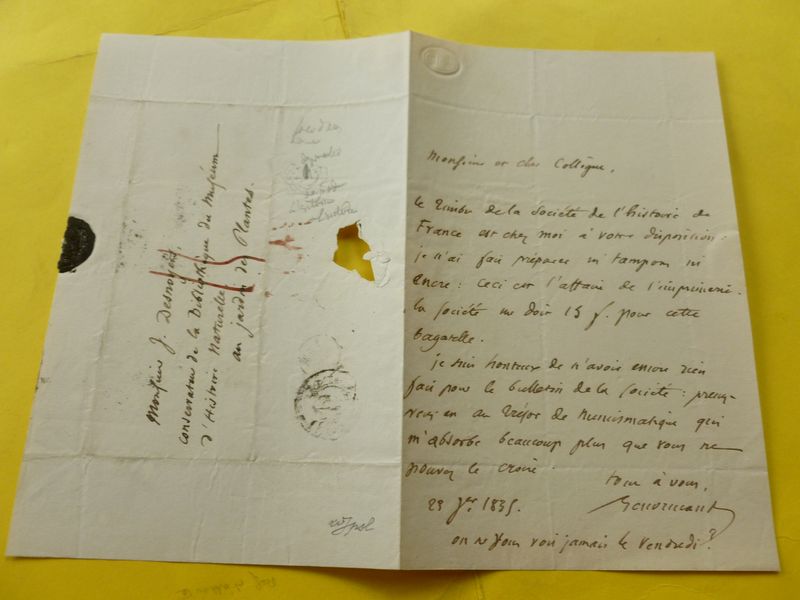 Monsieur et cher Collègue,
le timbre de la Société de l'histoire de
France est chez moi à votre disposition.
je n'ai fait préparer ni tampon ni
encre : ceci est l'affaire de l'imprimerie.
la Société me doit 15 f. pour cette
bagatelle.
je suis honteux de n'avoir encore rien
fait pour le bulletin de la Société : prenez-
vous-en au trésor de numismatique qui
m'absorbe beaucoup plus que vous ne
pouvez le croire.
tout à vous,
23 1835.
on ne vous voit jamais le vendredi ?
Monsieur J. Desnoyers
conservateur de la Bibliothèque du Muséum
d'Histoire Naturelle
au jardin des Plantes.